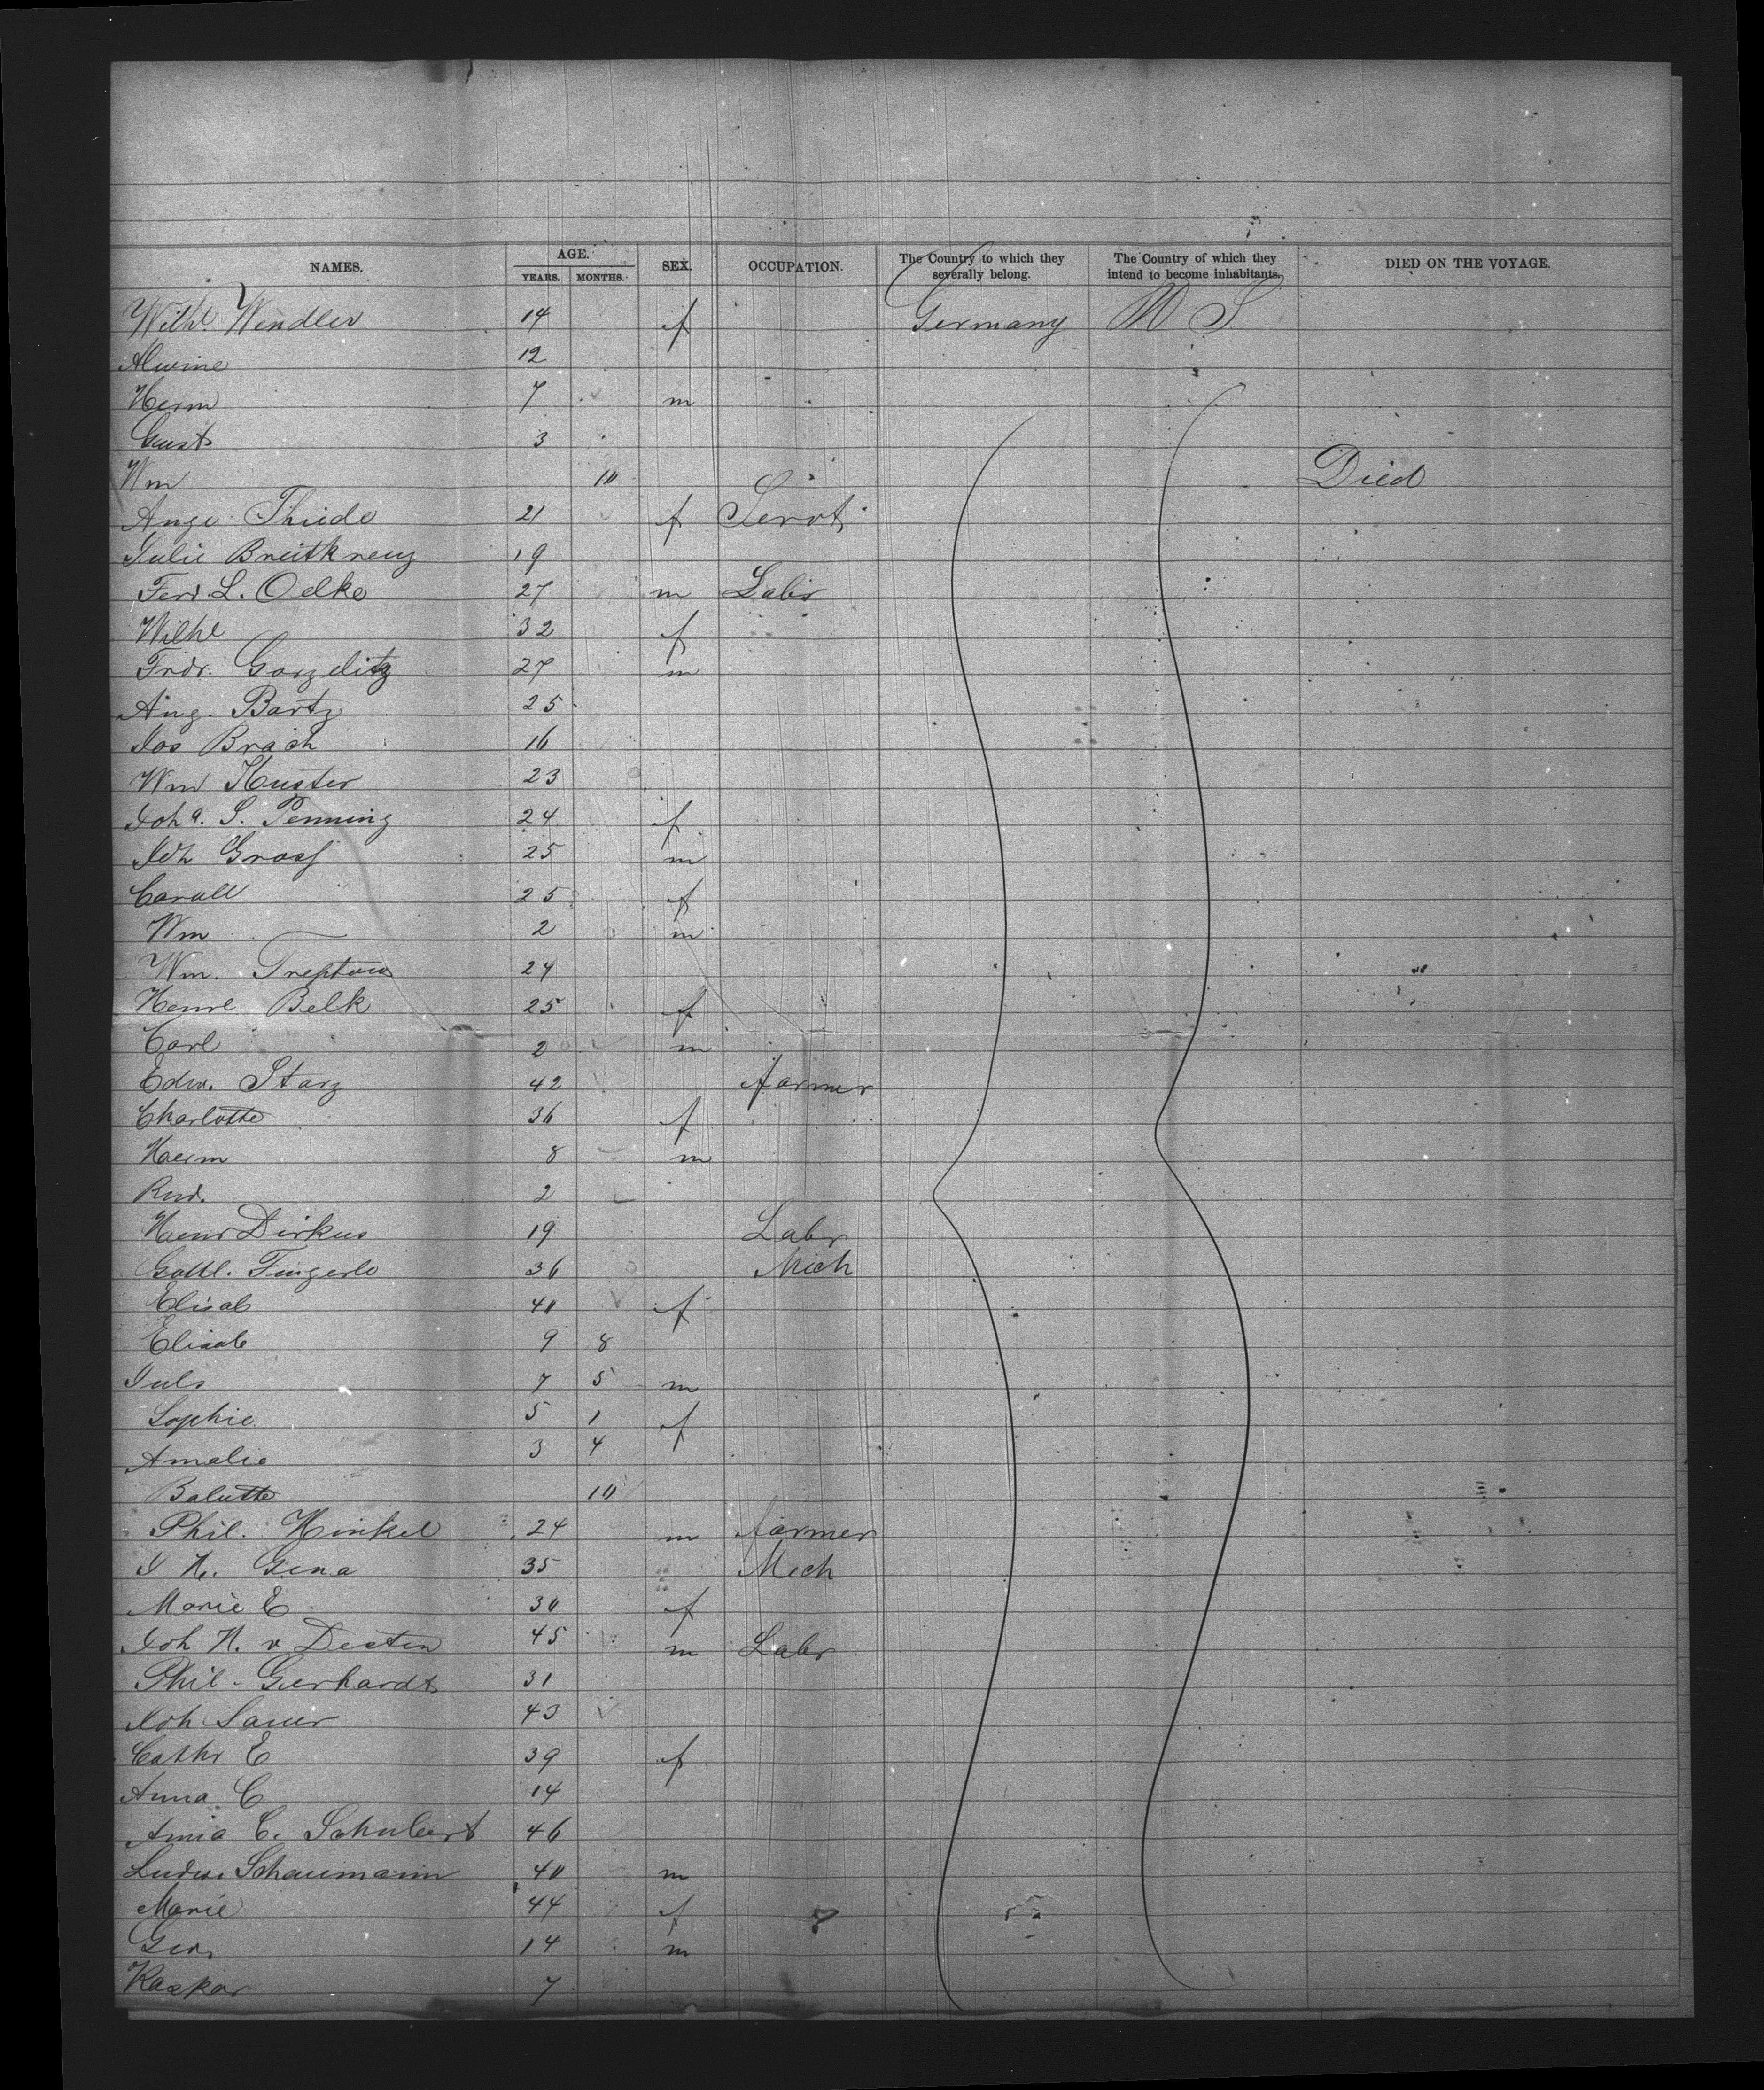 NAMES. AGE. YEARS. MONTHS. SEX. OCCUPATION. The Country to which they severally belong. The Country of which they intend to become inhabitants. DIED ON THE VOYAGE.
Wilhl Wendler 14 f Germany U S
Alwine 12
Herm 7 m
Gust 3
Wm 10 Died
Auge Thiede 21 f Servt
Julie Breitkreuz 19
Ferd L. Oelke 27 m Labr
Wilhl 32 f
Frdr. Gorzelitz 27 m
Aug. Bartz 25
Jos Brach 16
Wm Huster 23
Joha. S. Penning 24 f
Joh Gross 25 m
Caroll 25 f
Wm 2 m
Wm. Treptow 24
Henrl Belk 25 f
Carl 2 m
Edw. Starz 42 farmer
Charlotte 36 f
Herm 8 m
Rud. 2
Henr Dirkus 19 Labr
Gottl. Fingerle 36 Mich
Elisab 40 f
Elisab 9 8
Juls 7 5 m
Sophie 5 1 f
Amalie 3 4
Balutte 10
Phil. Hinkel 24 m farmer
J H. Gena 35 Mech
Marie E 30 f
Joh H. v Desten 45 m Labr
Phil. Gerhardt 31
Joh Sauer 43
Cathr E 39 f
Anna C 14
Anna C. Schubert 46
Ludw. Schaumann 40 m
Marie 44 f
Geo. 14 m
Kaspar 7